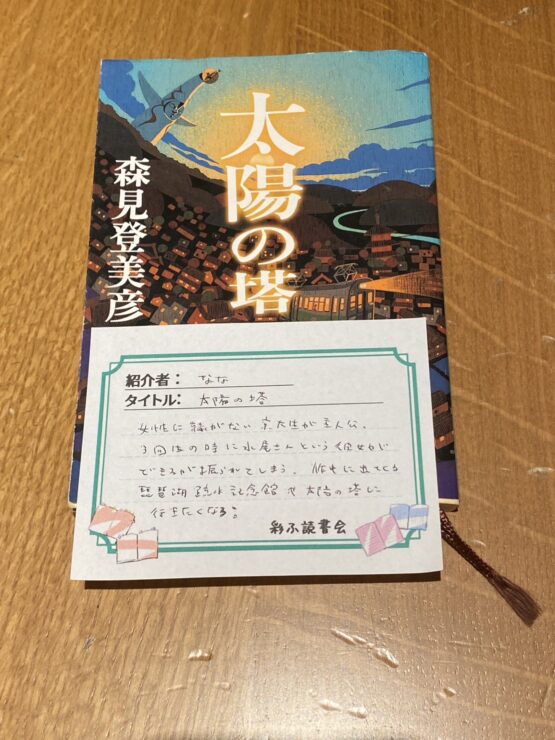 太陽の塔
森見登美彦
紹介者: なな
タイトル: 太陽の塔
女性に縁がない京大生が主人公。
3回生の時に水尾さんという彼女が
できるが振られてしまう。作中に出てくる
琵琶湖疏水記念館や太陽の塔に
行きたくなる!
彩ふ読書会